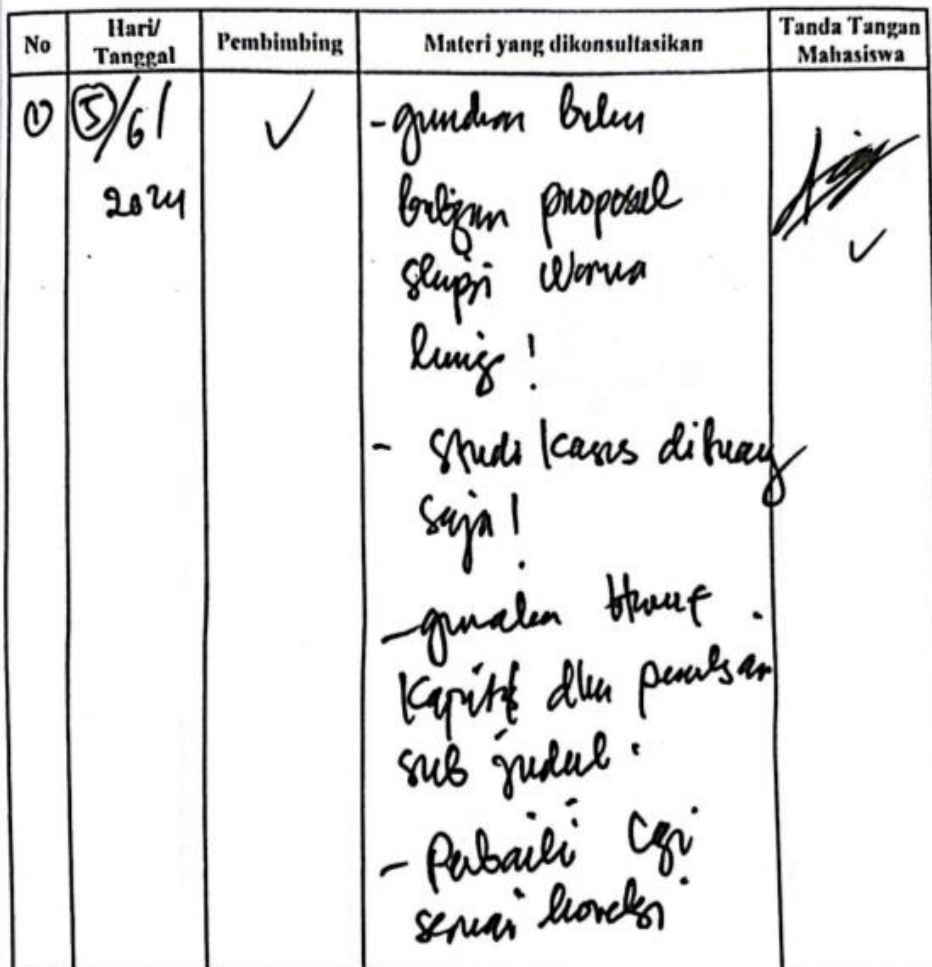 No Hari/ Tanggal Pembimbing Materi yang dikonsultasikan Tanda Tangan Mahasiswa
① ⑤/6/ ✓ - gunakan
2024 proposal
skripsi warna
!
- Studi kasus
saja!
- gunakan Huruf
Kapital dlm penulisan
sub judul.
- Perbaiki lagi
sesuai koreksi